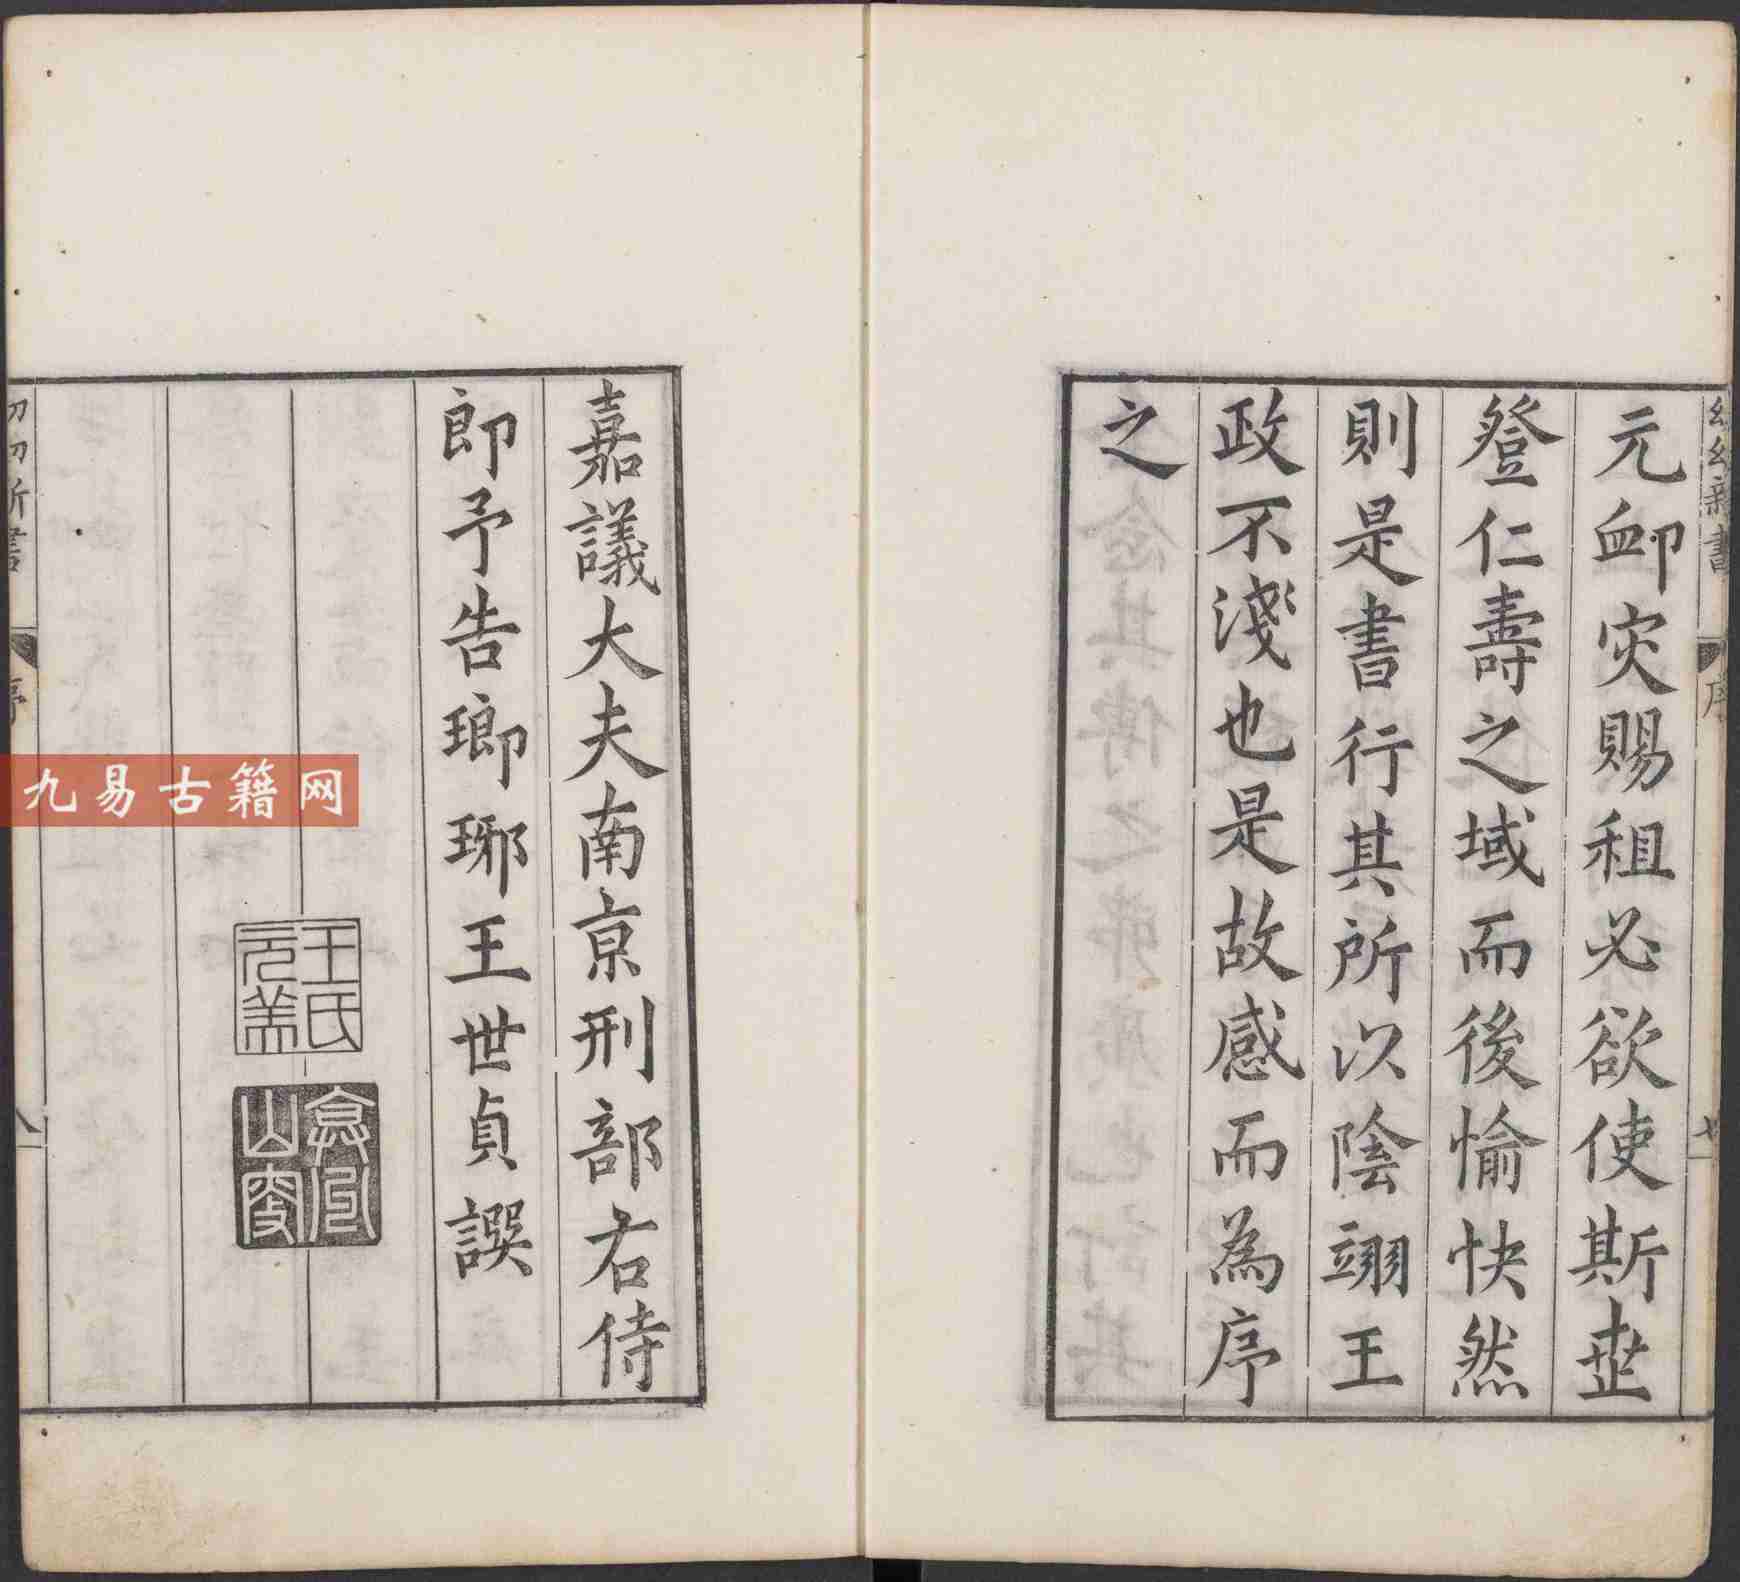 幼幼新書
序
七
元䘏灾賜租必欲使斯世
登仁壽之域而後愉快然
則是書行其所以陰翊王
政不淺也是故感而為序
之
嘉議大夫南京刑部右侍
郎予告瑯琊王世貞譔
王氏
元美
山房
幼幼新書
序
八
九易古籍网